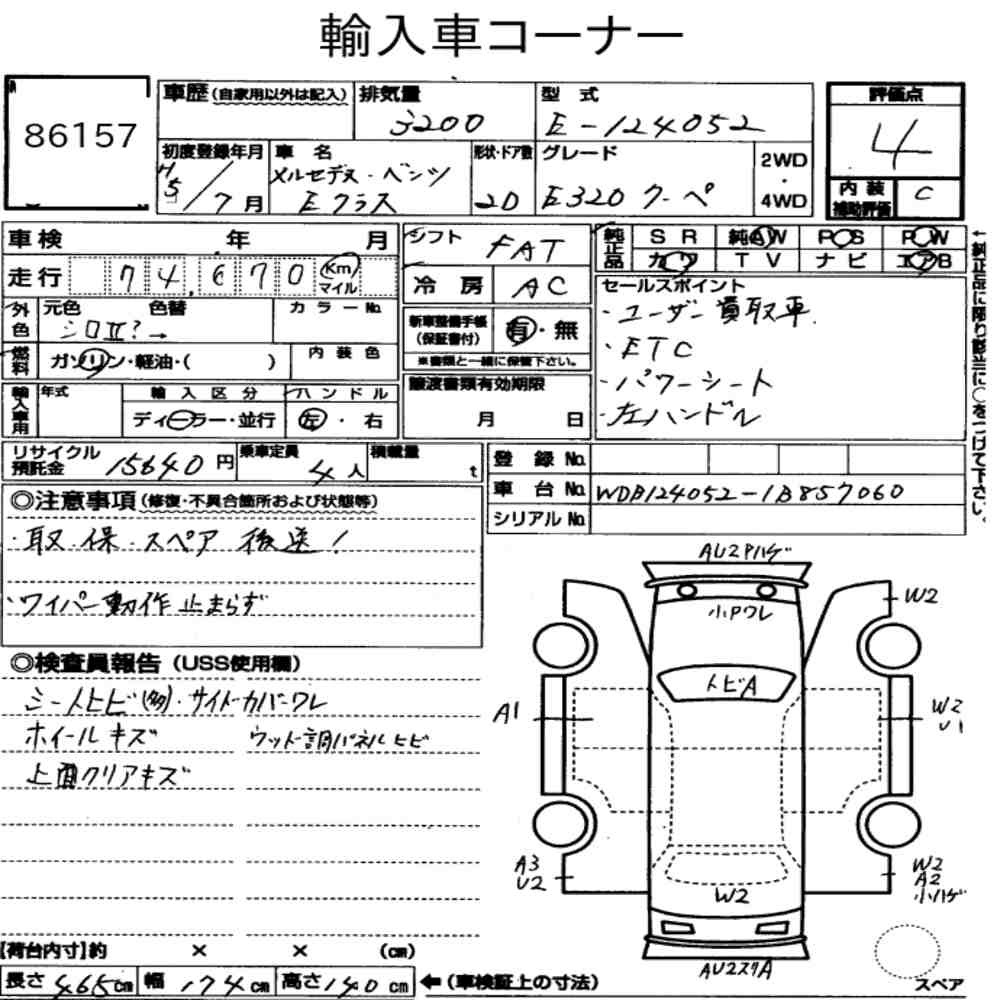 輸入車コーナー
86157
車歴 (自家用以外は記入)
排気量
3200
型式
E-124052
評価点
4
内装補助評価 C
初度登録年月
H5/7月
車名
メルセデス・ベンツ
Eクラス
形状・ドア数
2D
グレード
E320 クーペ
2WD・4WD
車検 年 月
走行 74,670 Km マイル
シフト FAT
冷房 AC
純正品
SR 純AW PS PW
カワ TV ナビ エアB
←純正品に限り該当に○をつけて下さい。
外色
元色 色替 カラーNo.
シロII?→
燃料
ガソリン・軽油・( )
内装色
新車整備手帳
(保証書付)
有・無
※書類と一緒に保管下さい。
セールスポイント
・ユーザー買取車
・ETC
・パワーシート
・左ハンドル
輸入車用
年式
輸入区分
ディーラー・並行
ハンドル
左・右
譲渡書類有効期限
月 日
リサイクル預託金 15640円
乗車定員 4人
積載量 t
登録No.
車台No. WDB124052-1B857060
シリアルNo.
◎注意事項 (修復・不具合箇所および状態等)
・取・保・スペア 後送!
・ワイパー動作止まらず
◎検査員報告 (USS使用欄)
シートヒビ(多)・サイドカバーワレ
ホイールキズ ウッド調パネルヒビ
上面クリアキズ
AU2Pハゲ
小Pワレ
W2
トビA
A1
W2
U1
A3
U2
W2
A2
小ハゲ
W2
AU2スリA
スペア
【荷台内寸】約 × × (cm)
長さ 465cm 幅 174cm 高さ 140cm ←(車検証上の寸法)